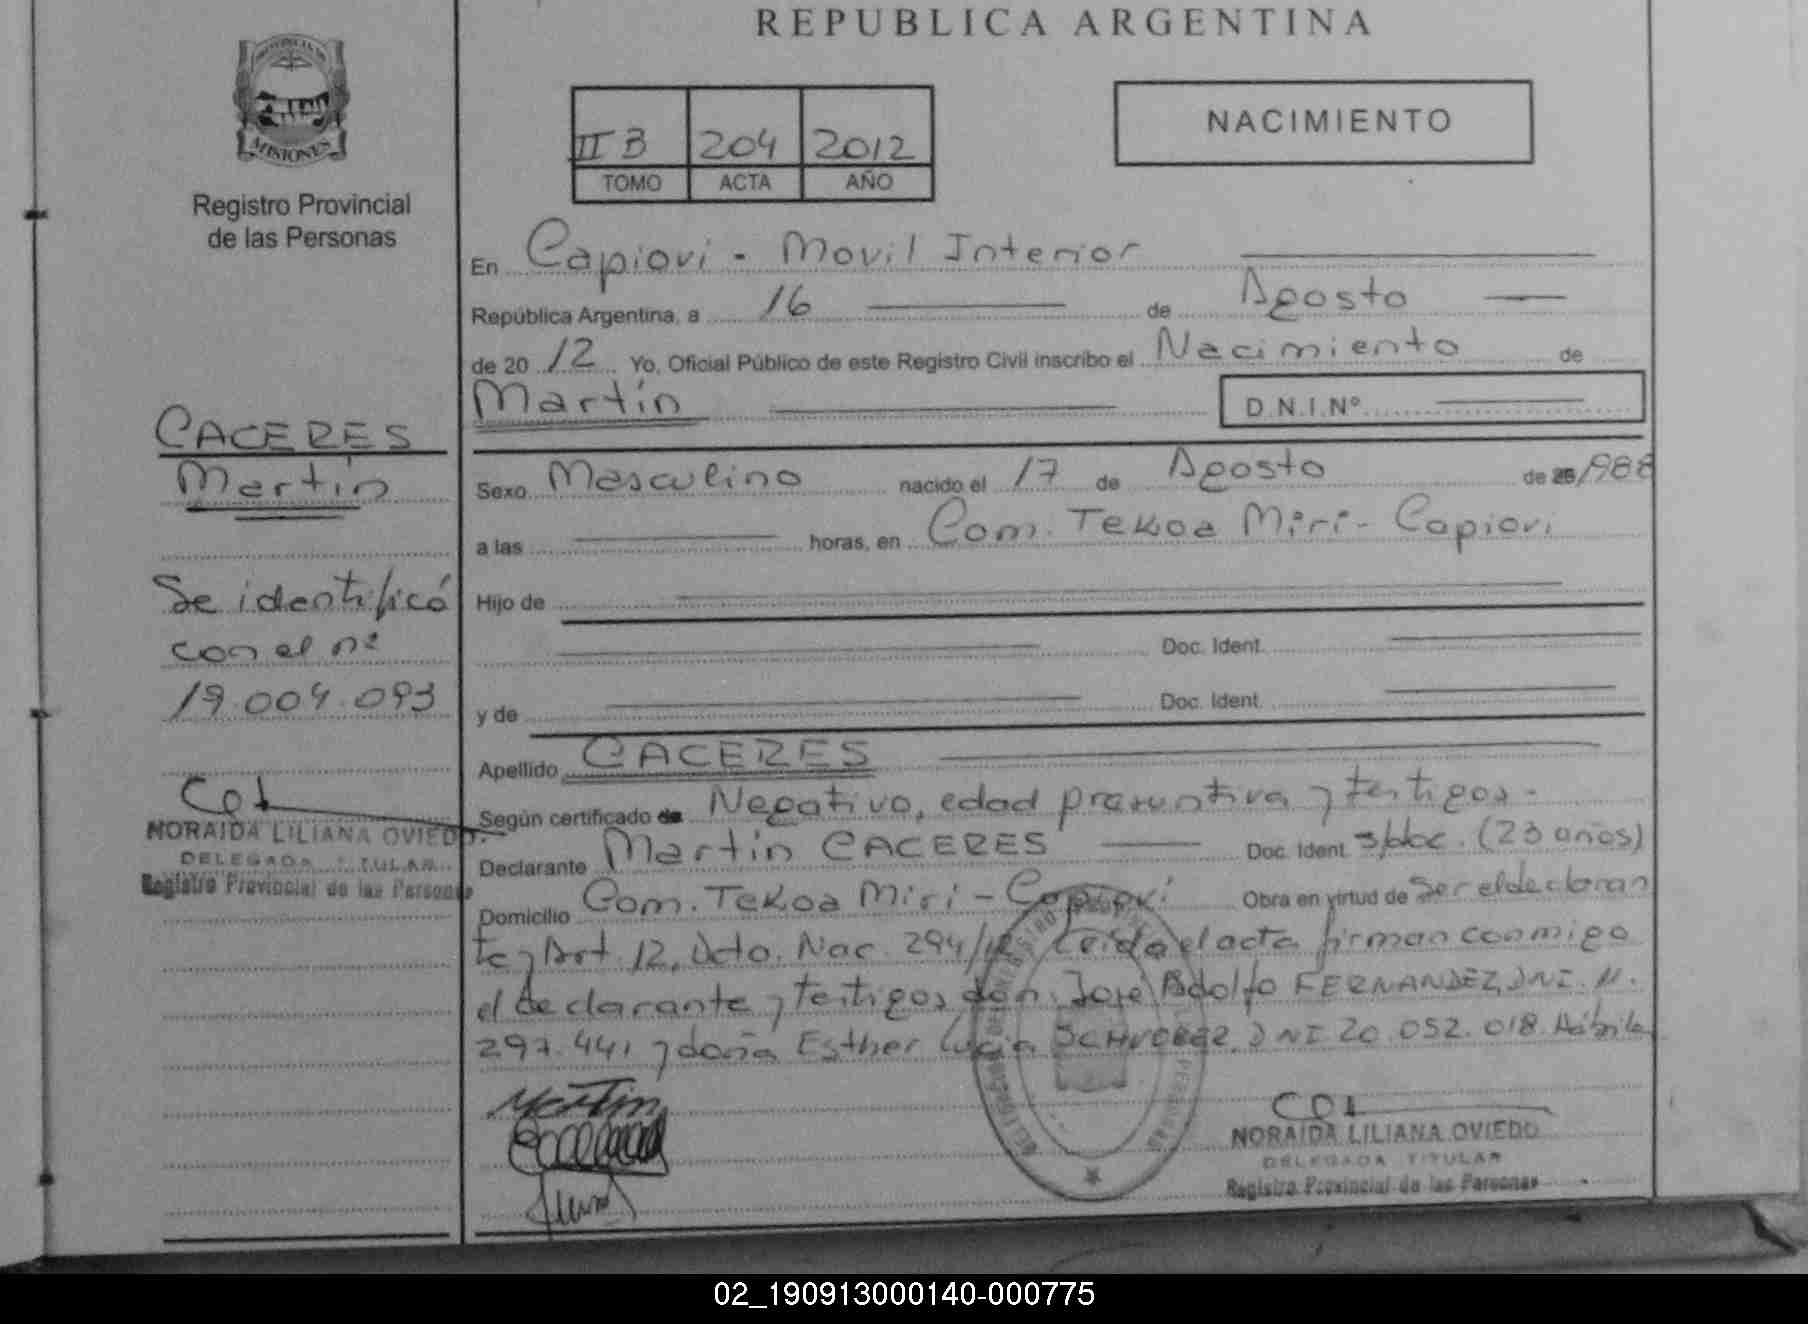 REPUBLICA ARGENTINA
PROVINCIA DE
MISIONES
Registro Provincial
de las Personas
II B 204 2012
TOMO ACTA AÑO
NACIMIENTO
En Capiovi - Movil Interior
República Argentina, a 16 de Agosto
de 20 12 Yo, Oficial Público de este Registro Civil inscribo el Nacimiento de
Martín
D.N.I.Nº
CACERES
Martín
Se identificó
con el nº
19.004.093
NORAIDA LILIANA OVIEDO
DELEGADA TITULAR
Registro Provincial de las Personas
Sexo Masculino nacido el 17 de Agosto de 1988
a las horas, en Com. Tekoa Miri - Capiovi
Hijo de
Doc. Ident.
y de Doc. Ident.
Apellido CACERES
Según certificado de Negativo, edad presuntiva y testigos.
Declarante Martín CACERES Doc. Ident. s/doc. (23 años)
Domicilio Com. Tekoa Miri - Capiovi Obra en virtud de ser el declaran
te y Art. 12, Dcto. Nac. 294/ Leída el acta firman conmigo
el declarante y testigos don José Adolfo FERNANDEZ, DNI. 11.
297.441 y doña Esther Lucia DNI 20.052.018. Hábiles
Martin
NORAIDA LILIANA OVIEDO
DELEGADA TITULAR
Registro Provincial de las Personas
02_190913000140-000775